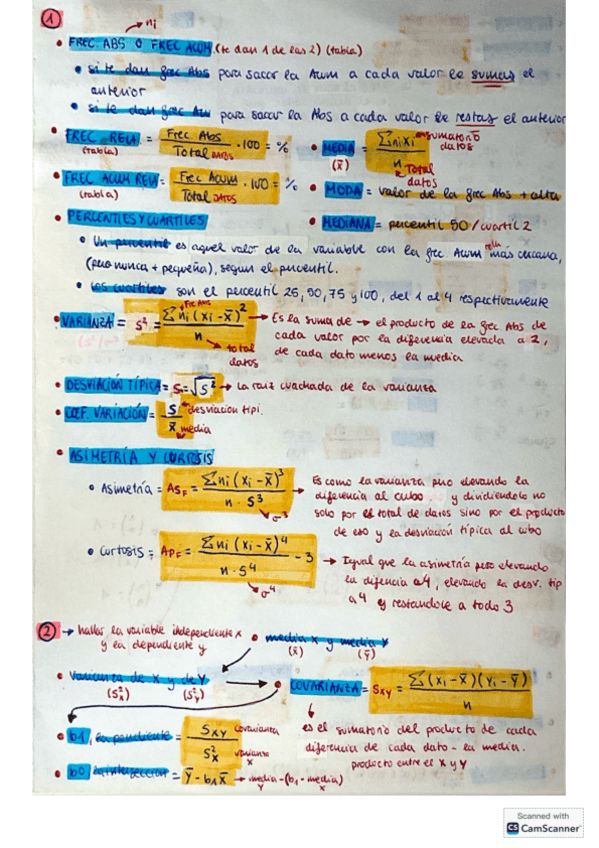 ① → ni
• FREC. ABS O FREC ACUM. (te dan 1 de las 2) (tabla)
• si te dan frec Abs para sacar la Acum a cada valor le sumas el
anterior
• si te dan frec Acu para sacar la Abs a cada valor le restas el anterior
• FREC RELA = Frec. Abs / Total DATOS · 100 = %
(tabla)
• MEDIA = Σ ni xi / n → sumatorio datos
(x̄) → Total datos
• FREC ACUM REL = Frec Acum / Total DATOS · 100 = %
(tabla)
• MODA = valor de la frec Abs + alta
• PERCENTILES Y CUARTILES
• MEDIANA = percentil 50 / cuartil 2
• Un percentil es aquel valor de la variable con la frec Acum rela más cercana,
(pero nunca + pequeña), segun el percentil.
• Los cuartiles son el percentil 25, 50, 75 y 100, del 1 al 4 respectivamente
• VARIANZA = S² = Σ ni (xi - x̄)² / n → Es la suma de → el producto de la frec Abs de
Frec Abs
cada valor por la diferencia elevada a 2,
total datos
de cada dato menos la media
• DESVIACIÓN TÍPICA = S = √S² → La raiz cuadrada de la varianza
• COEF. VARIACIÓN = S / x̄
desviacion tipi.
media
• ASIMETRÍA Y CURTOSIS
• Asimetría = AS_F = Σ ni (xi - x̄)³ / n · S³ → Es como la varianza pero elevando la
diferencia al cubo y dividiendolo no
solo por el total de datos sino por el producto
σ³
de eso y la desviación típica al cubo
• Curtosis = Ap_F = Σ ni (xi - x̄)⁴ / n · S⁴ - 3 → Igual que la asimetría pero elevando
la difencia a 4, elevando la desv. tip
σ⁴
a 4 y restandole a todo 3
② → hallar la variable independiente x
y la dependiente y
• media x y media Y
(x̄) (ȳ)
• Varianza de X y de Y
(S²x) (S²y)
• COVARIANZA = Sxy = Σ (xi - x̄)(Yi - Ȳ) / n
• b1, la pendiente = Sxy / S²x
covarianza
varianza x
es el sumatorio del producto de cada
diferencia de cada dato - la media.
producto entre el X y Y
• b0 la interseccion = Ȳ - b1 x̄ → media y - (b1 · media x)
Scanned with
CS CamScanner